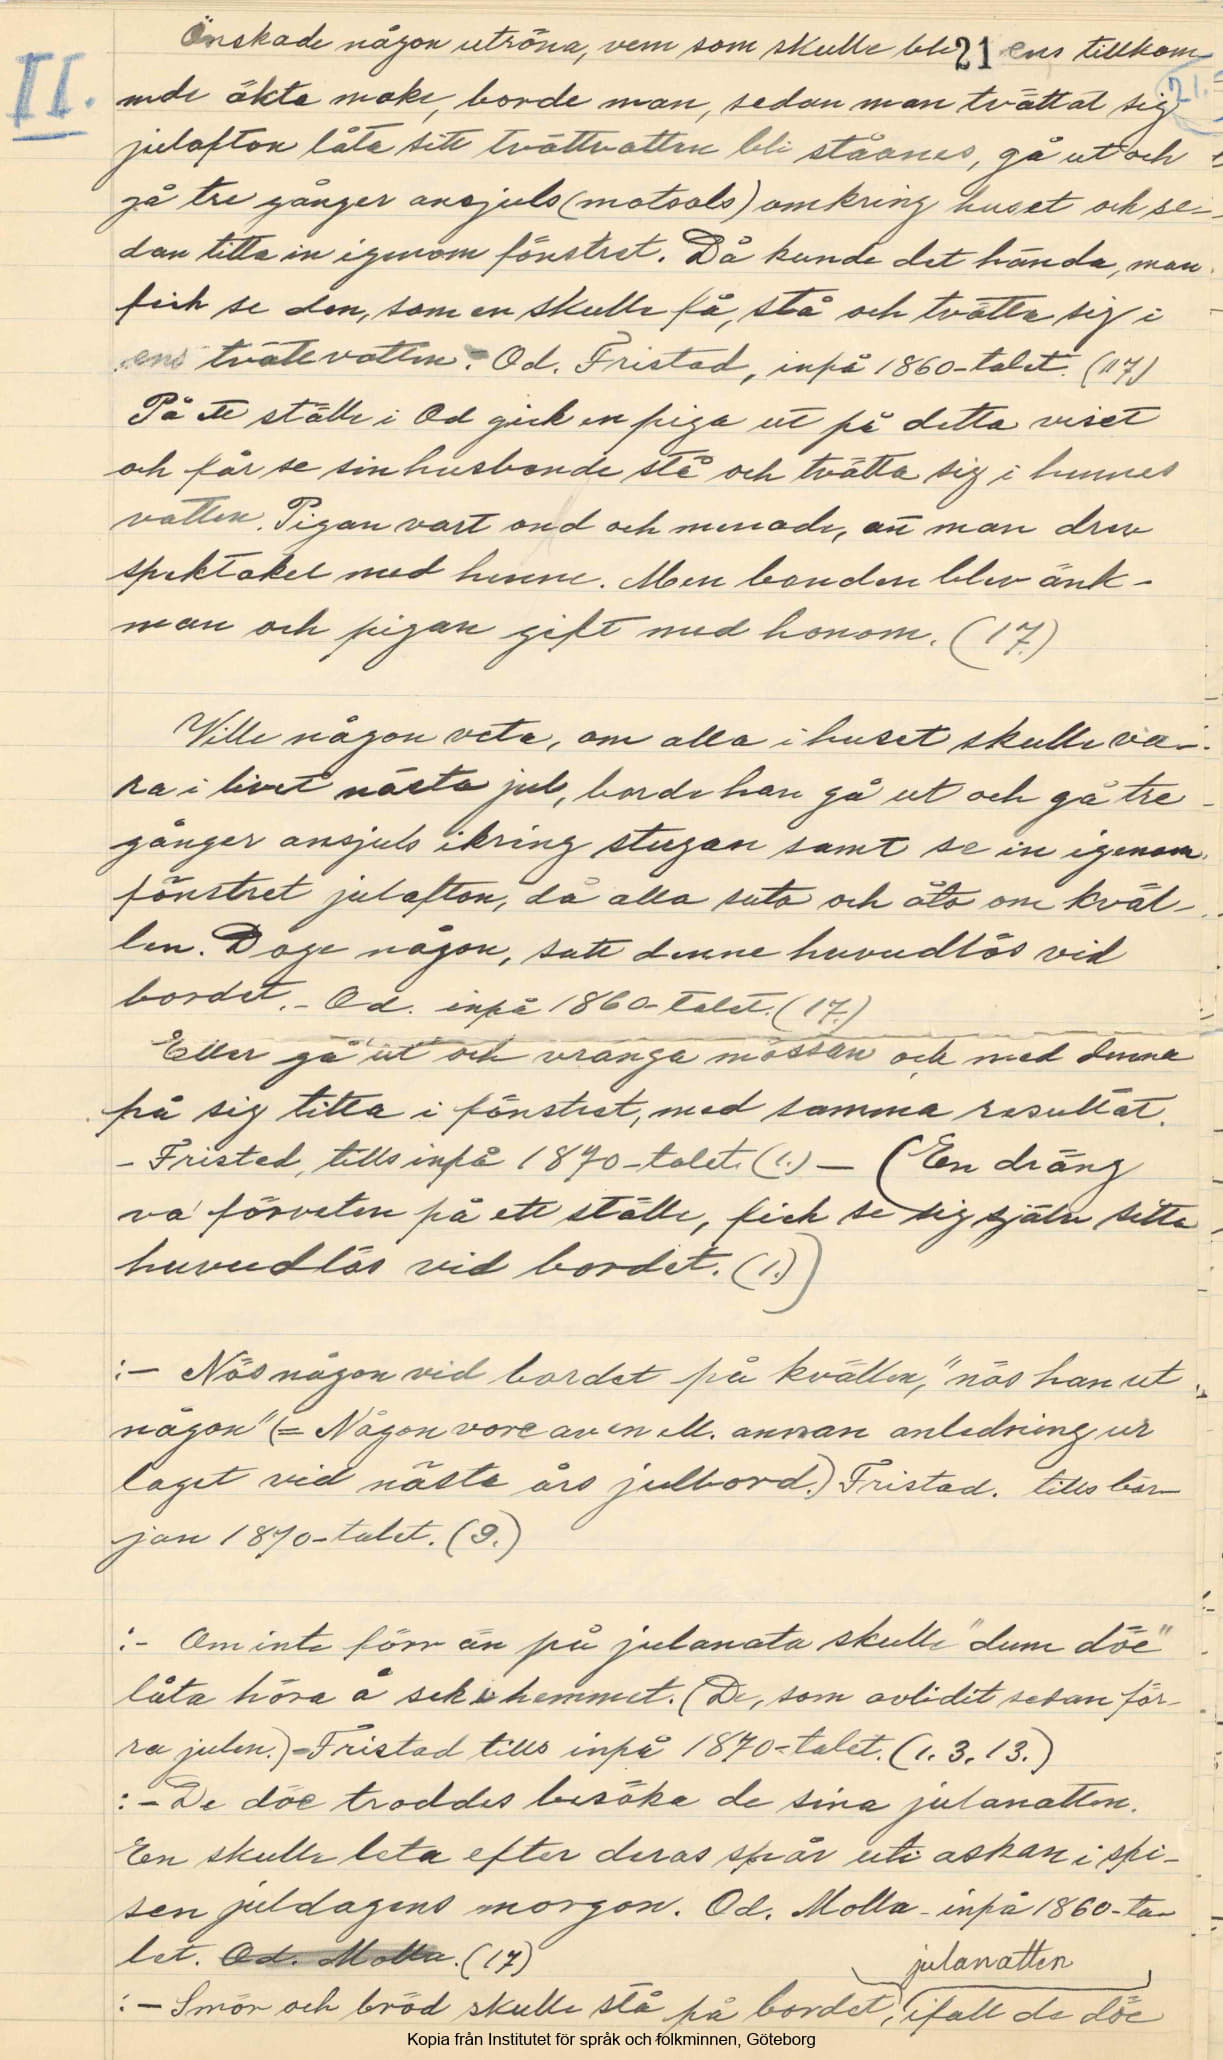 II.
21
21.
Önskade någon utröna, vem som skulle bli ens tillkom-
mde äkta make, borde man, sedan man tvättat sig
julafton låta sitt tvättvatten bli ståanes, gå ut och
gå tre gånger ansjuls (motsols) omkring huset och se-
dan titta in igenom fönstret. Då kunde det hända, man
fick se den, som en skulle få, stå och tvätta sig i
ens tvättvatten. - Od. Fristad, inpå 1860-talet. (17)
På ett ställe i Od gick en piga ut på detta viset
och får se sin husbonde stå och tvätta sig i hennes
vatten. Pigan vart ond och menade, att man drev
spektakel med henne. Men bonden blev änk-
man och pigan gift med honom. (17.)
Ville någon veta, om alla i huset skulle va-
ra i livet nästa jul, borde han gå ut och gå tre
gånger ansjuls ikring stugan samt se in igenom
fönstret julafton, då alla suto och åto om kväl-
len. Doge någon, satt denne huvudlös vid
bordet. - Od. inpå 1860-talet. (17.)
Eller gå ut och vränga mössan och med denna
på sig titta i fönstret, med samma resultat.
- Fristad, tills inpå 1870-talet. (1.) - (En dräng
va' förveten på ett ställe, fick se sig själv sitta
huvudlös vid bordet. (1.))
:- Nös någon vid bordet på kvällen, "nös han ut
någon" (= Någon vore av en ell. annan anledning ur
laget vid nästa års julbord.) Fristad. tills bör-
jan 1870-talet. (9.)
:- Om inte förr än på julanata skulle "dum döe"
låta höra å sek i hemmet. (De, som avlidit sedan för-
ra julen.) - Fristad tills inpå 1870-talet. (1. 3. 13.)
:- De döe troddes besöka de sina julanatten.
En skulle leta efter deras spår uti askan i spi-
sen juldagens morgon. Od. Molla - inpå 1860-ta-
let. Od. Molla. (17)
julanatten
:- Smör och bröd skulle stå på bordet, ifall de döe
Kopia från Institutet för språk och folkminnen, Göteborg